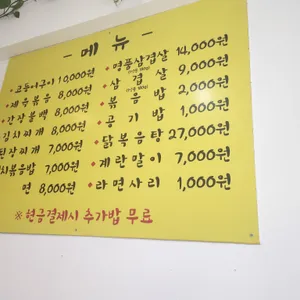 - 메 뉴 -
고등어구이 10,000원
제육볶음 8,000원
간장불백 8,000원
김치찌개 8,000원
된장찌개 7,000원
치볶음밥 7,000원
면 8,000원
명품삼겹살 14,000원
삼겹살 9,000원
볶음밥 2,000원
공기밥 1,000원
닭볶음탕 27,000원
계란말이 7,000원
라면사리 1,000원
※ 현금결제시 추가밥 무료